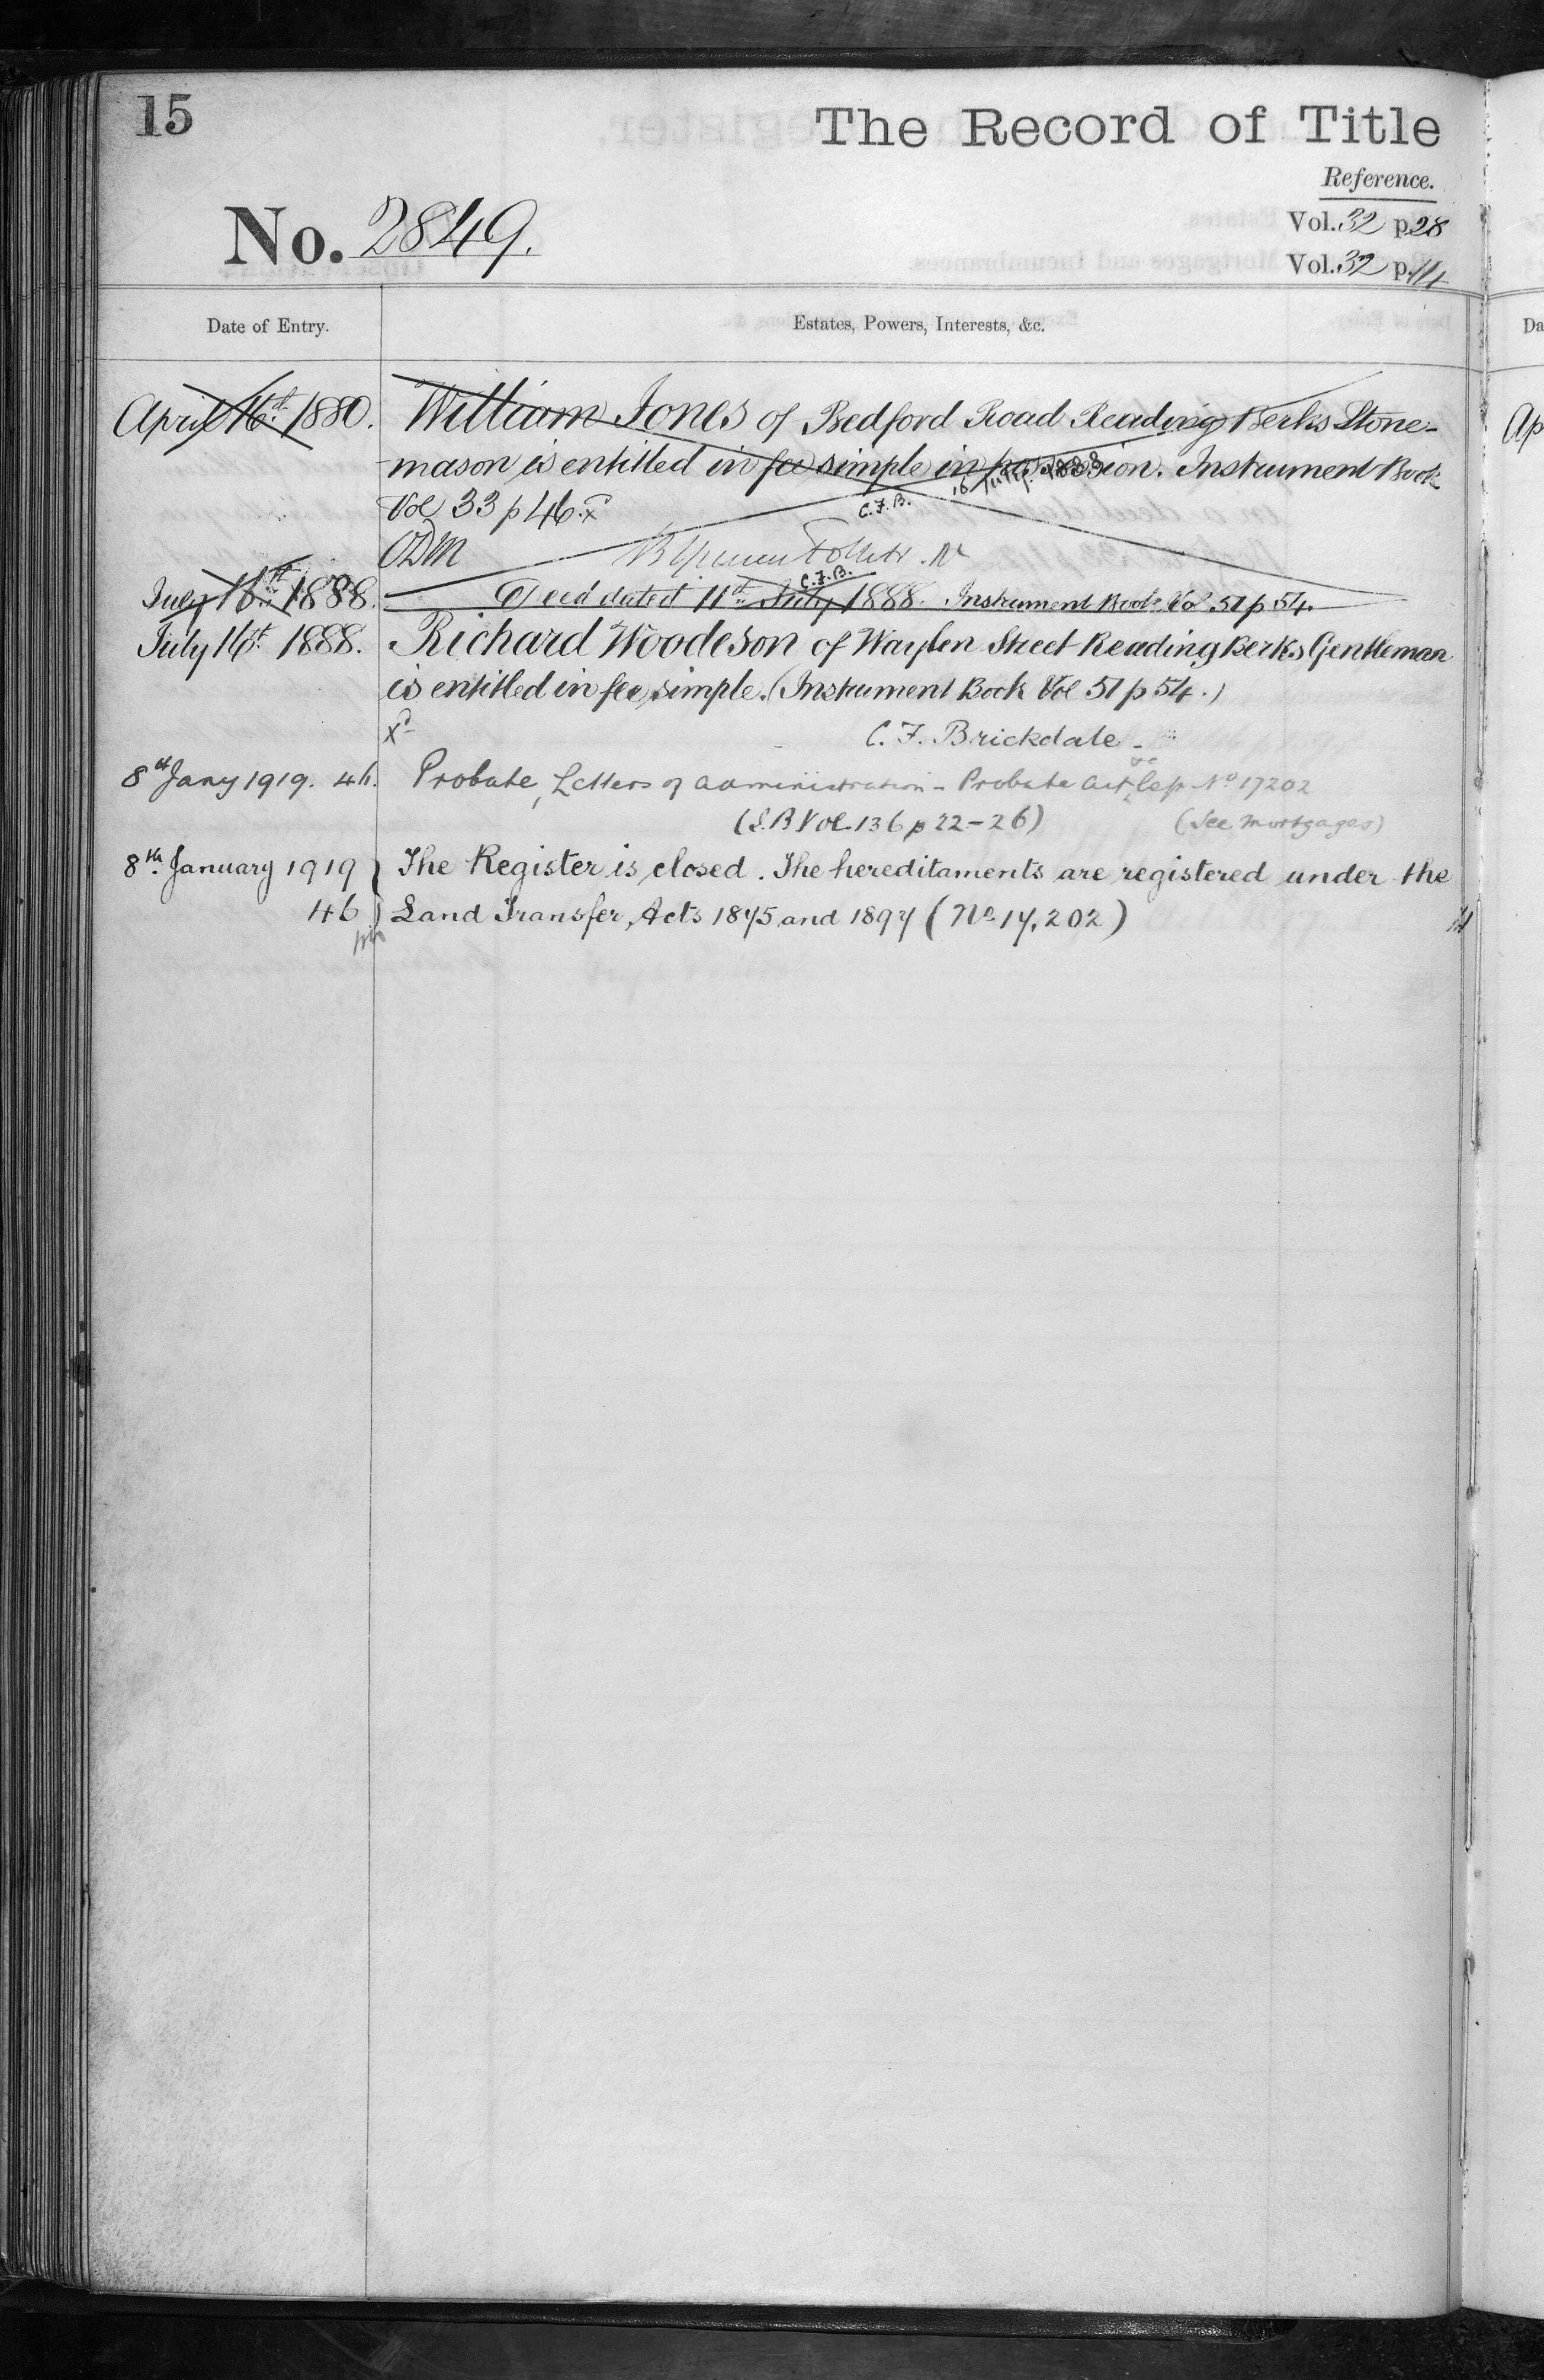 15
The Record of Title
Reference.
No. 2849.
Vol. 32 p. 28
Vol. 32 p. 111
Date of Entry.
Estates, Powers, Interests, &c.
April 16th 1880. William Jones of Bedford Road Reading Berks Stone-
mason is entitled in fee simple in possession. Instrument Book
C.F.B. 16 July. 1888
Vol 33 p 46. xd
ODM
C.F.B.
July 16th 1888. Deed dated 11th July 1888. Instrument Book Vol 51 p 54.
July 16th 1888. Richard Woodeson of Waylen Street Reading Berks Gentleman
is entitled in fee simple. (Instrument Book Vol 51 p 54.)
xd C. F. Brickdale
8th Jany 1919. 46. Probate, Letters of administration - Probate & Cesp No 17202
(I.B Vol. 136 p 22-26) (See Mortgages)
8th January 1919 } The Register is closed. The hereditaments are registered under the
46 } Land Transfer Acts 1875 and 1897 (No 17,202)
Da
Ap